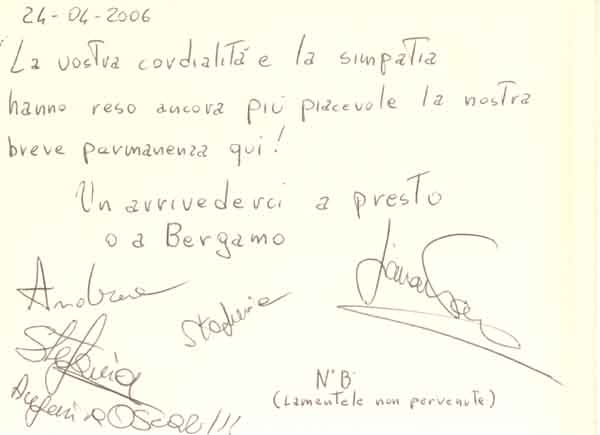 24-04-2006
La vostra cordialità e la simpatia
hanno reso ancora più piacevole la nostra
breve permanenza qui!
Un arrivederci a presto
o a Bergamo
Andrea
Stefania
N°B
(Lamentele non pervenute)
Oscar!!!